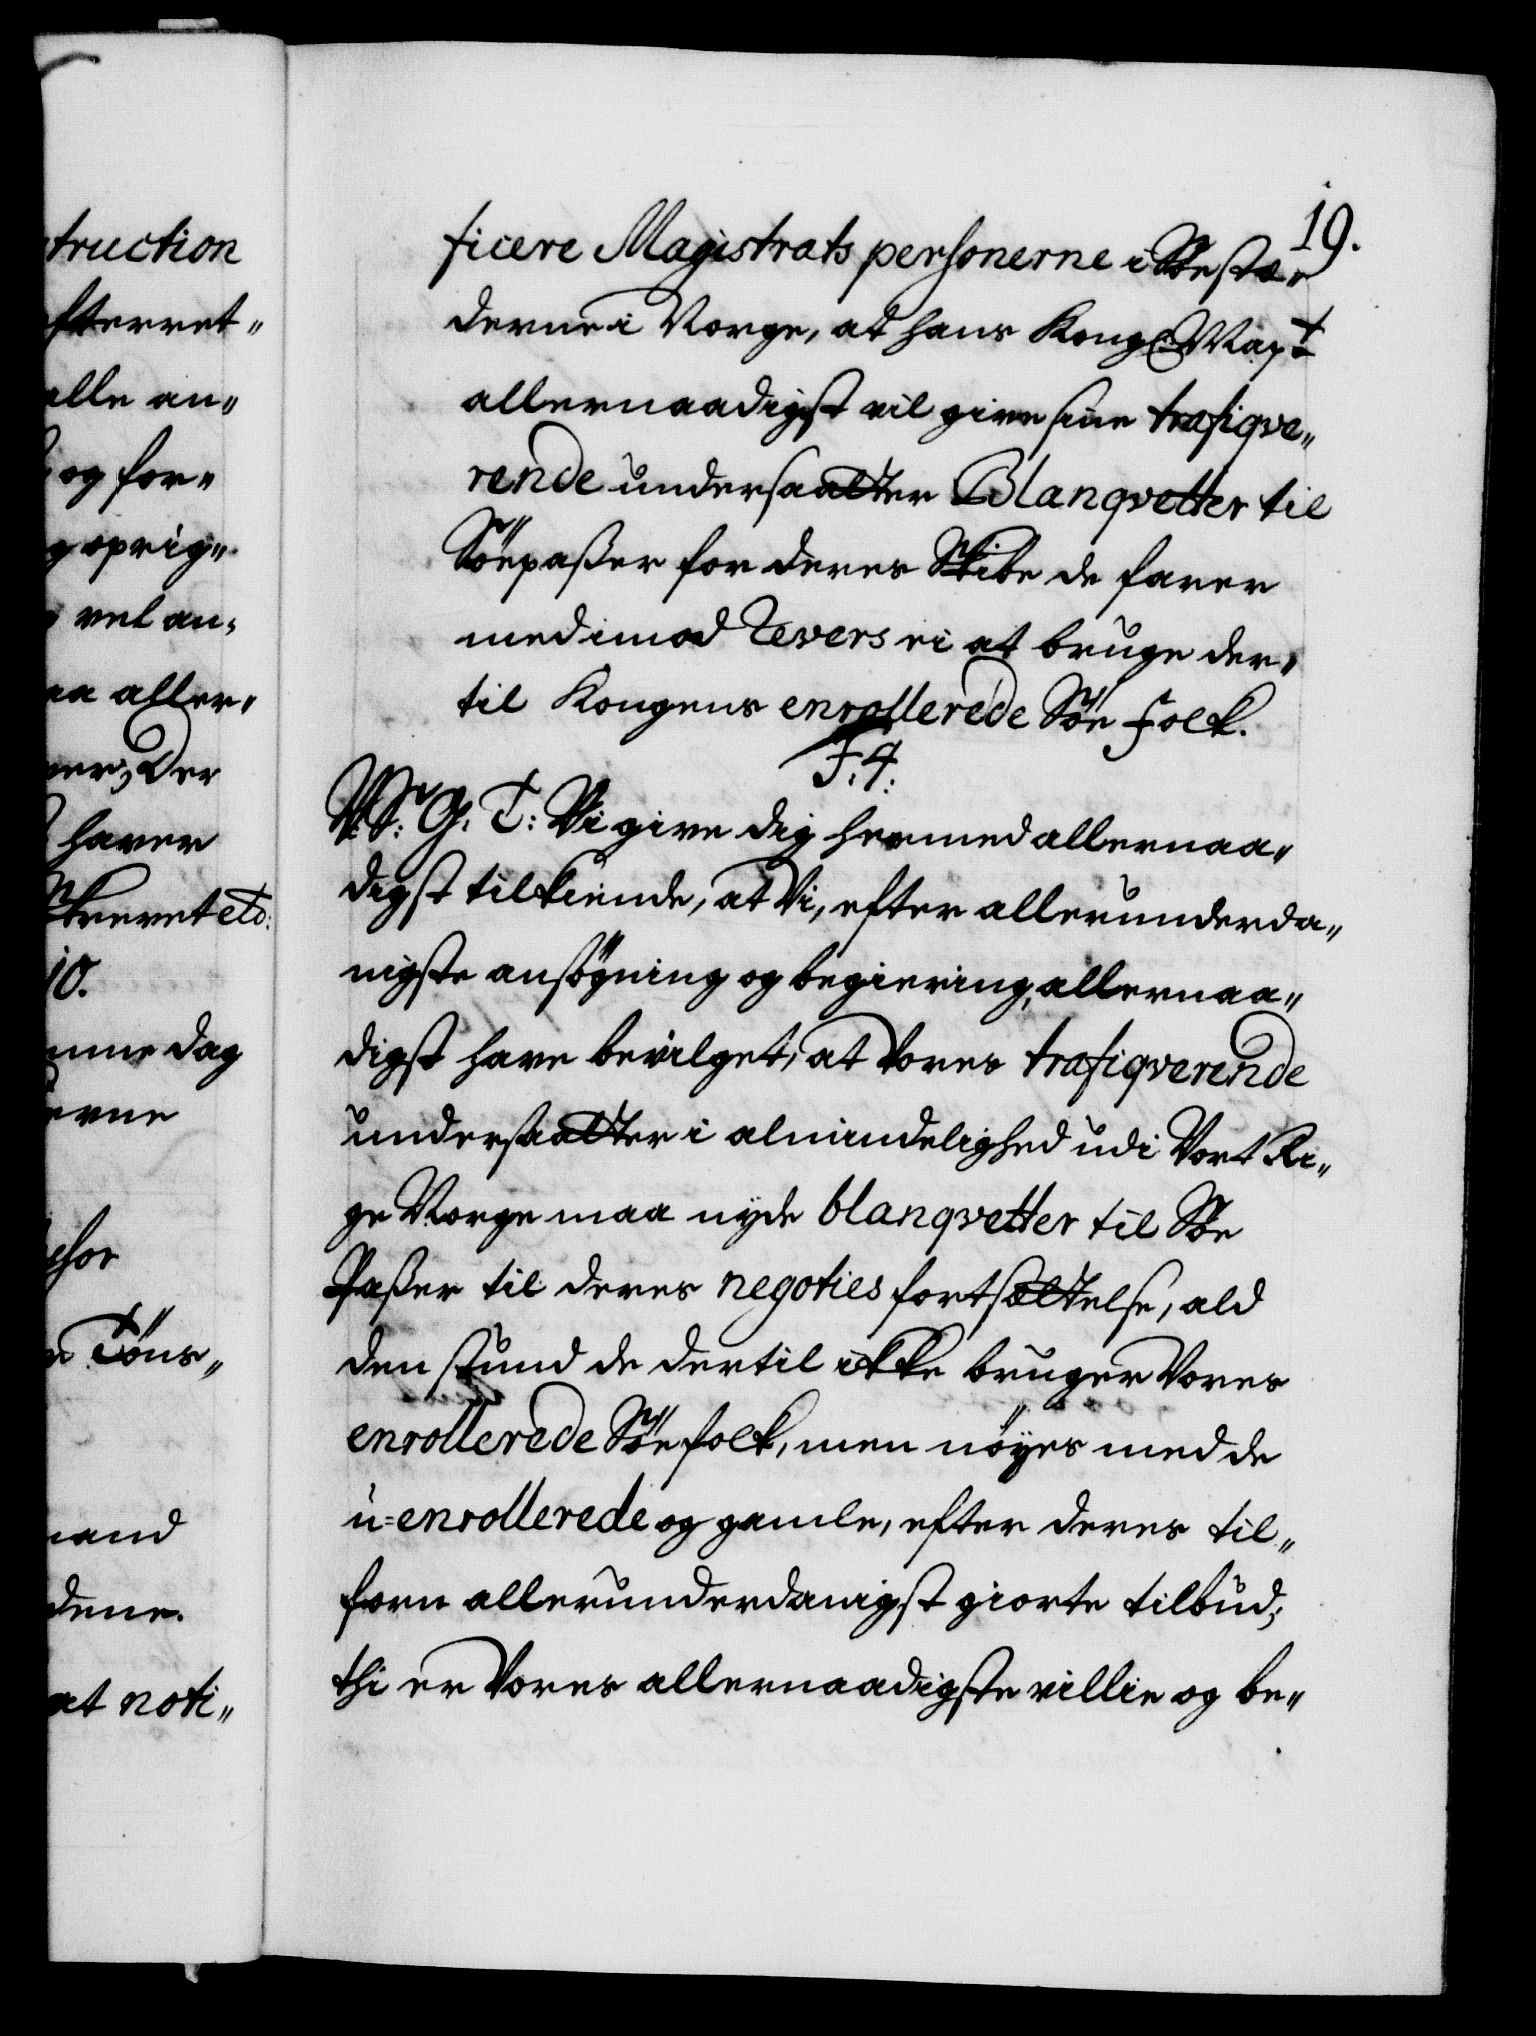 truction
efterret„
alle an„
og for„
g oprig„
vel an„
aa aller„
ver, Der
haver
Skrevet etc:
10.
mme dag
erne
sor
n Töns„
mand
dene.
at noti„
19.
ficere Magistrats personerne i Söe stæ„
derne i Norge, at hans Kongl. May:t
allernaadigst vil give sine trafiqve„
rende undersaatter Blanqvetter til
Söepasser for deres Skibe de farer
med imod Revers ei at bruge der„
til Kongens enrollerede Söe folk.
F. 4.
V. S: G. T: Vi give dig hermed allernaa„
digst tilkiende, at Vi, efter allerunderda„
nigste ansögning og begiering, allernaa„
digst have bevilget, at Vores trafiqverende
undersaatter i almindelighed udi Vort Ri„
ge Norge maa nyde blanqvetter til Söe
Passer til deres negoties fortsættelse, ald
den stund de dertil ikke bruger Vores
enrollerede Söefolk, men nöyes med de
u=enrollerede og gamle, efter deres til„
forn allerunderdanigst giorte tilbud;
thi er Vores allernaadigste villie og be„